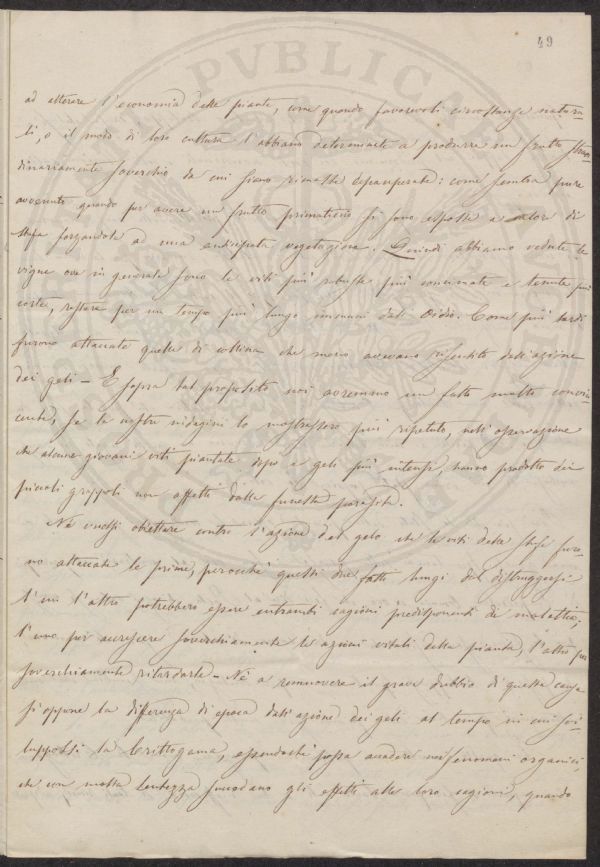 49
ad alterare l'economia delle piante, come quando favorevoli circostanze natura-
li, o il modo di loro cultura l'abbiano determinate a produrre un frutto straor-
dinariamente soverchio da cui siano rimaste depauperate: come sembra pure
avvenuto quando per avere un frutto primaticcio si sono esposte a calor di
stufa forzandole ad una anticipata vegetazione. Quindi abbiamo vedute le
vigne ove in generale sono le viti più robuste più concimate e tenute più
corte, restare per un tempo più lungo immuni dall'Oidio. Come più tardi
furono attaccate quelle di collina che meno avevano risentito dell'azione
dei geli – E sopra tal proposito noi avremmo un fatto molto convin-
cente, se le nostre indagini lo mostrassero più ripetuto, nell'osservazione
che alcune giovani viti piantate dopo i geli più intensi, hanno prodotto dei
piccoli grappoli non affetti dalla funesta parassita.
Nè vuolsi obiettare contro l'azione del gelo che le viti delle stufe furo-
no attaccate le prime, perocchè questi due fatti lungi dal distruggersi
l'un l'altro potrebbero essere entrambi cagioni predisponenti di malattia,
l'uno per accrescere soverchiamente le azioni vitali della pianta, l'altro per
soverchiamente ritardarle – Nè a rimuovere il grave dubbio di questa causa
si oppone la differenza di epoca dall'azione dei geli al tempo in cui svi-
luppossi la Crittogama, essendochè possa accadere nei fenomeni organici,
che con molta lentezza succedano gli effetti alle loro cagioni, quando
PVBLICAE